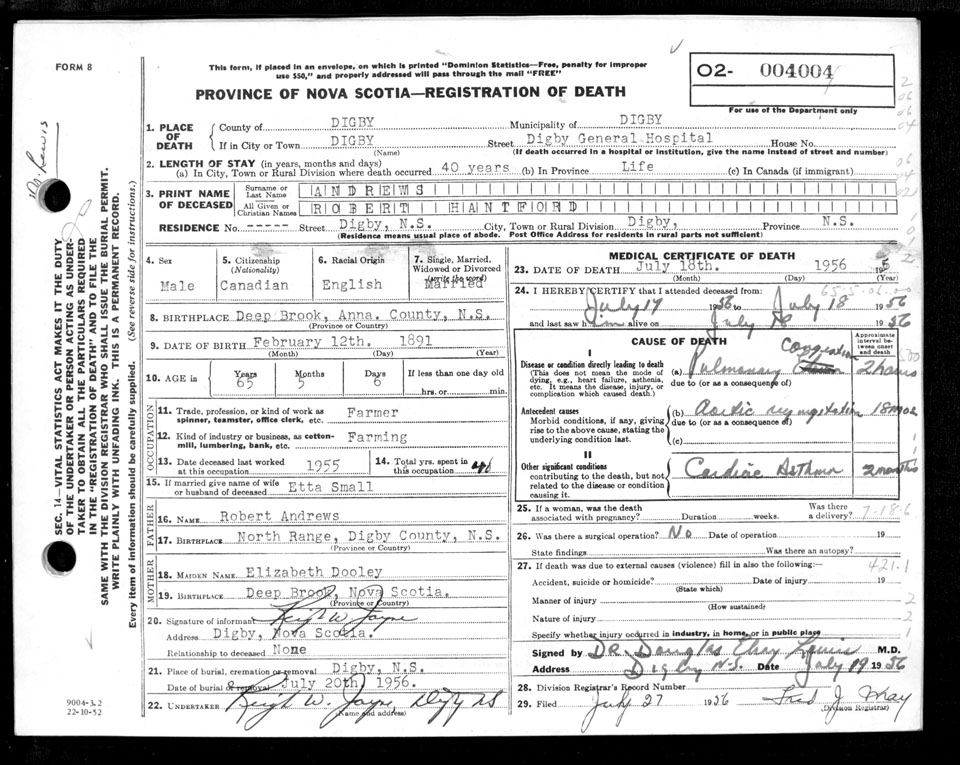 FORM 8
This form, if placed in an envelope, on which is printed "Dominion Statistics—Free, penalty for improper
use $50," and properly addressed will pass through the mail "FREE"
02- 004004
PROVINCE OF NOVA SCOTIA—REGISTRATION OF DEATH
For use of the Department only
1. PLACE OF DEATH
County of DIGBY Municipality of DIGBY
If in City or Town DIGBY Street Digby General Hospital House No.
(Name) (If death occurred in a hospital or institution, give the name instead of street and number)
2. LENGTH OF STAY (in years, months and days)
(a) In City, Town or Rural Division where death occurred 40 years (b) In Province Life (c) In Canada (if immigrant)
3. PRINT NAME OF DECEASED
Surname or Last Name ANDREWS
All Given or Christian Names ROBERT HANTFORD
RESIDENCE No. ----- Street Digby, N.S. City, Town or Rural Division Digby, Province N.S.
(Residence means usual place of abode. Post Office Address for residents in rural parts not sufficient)
4. Sex
Male
5. Citizenship
(Nationality)
Canadian
6. Racial Origin
English
7. Single, Married,
Widowed or Divorced
(write the word)
Married
8. BIRTHPLACE Deep Brook, Anna. County, N.S.
(Province or Country)
9. DATE OF BIRTH February 12th. 1891
(Month) (Day) (Year)
10. AGE in Years Months Days If less than one day old
65 5 6 hrs. or min.
OCCUPATION
11. Trade, profession, or kind of work as
spinner, teamster, office clerk, etc. Farmer
12. Kind of industry or business, as cotton-
mill, lumbering, bank, etc. Farming
13. Date deceased last worked
at this occupation 1955
14. Total yrs. spent in
this occupation
15. If married give name of wife
or husband of deceased Etta Small
FATHER
16. NAME Robert Andrews
17. BIRTHPLACE North Range, Digby County, N.S.
(Province or Country)
MOTHER
18. MAIDEN NAME Elizabeth Dooley
19. BIRTHPLACE Deep Brook, Nova Scotia.
(Province or Country)
20. Signature of informant
Address Digby, Nova Scotia.
Relationship to deceased None
21. Place of burial, cremation or removal Digby, N.S.
Date of burial or removal July 20th, 1956.
22. UNDERTAKER
(Name and address)
MEDICAL CERTIFICATE OF DEATH
23. DATE OF DEATH July 18th. 1956 195
(Month) (Day) (Year)
24. I HEREBY CERTIFY that I attended deceased from:
July 17 1956 to July 18 1956
and last saw him alive on July 18 1956
CAUSE OF DEATH
Approximate interval between onset and death
I
Disease or condition directly leading to death
(This does not mean the mode of
dying, e.g., heart failure, asthenia,
etc. It means the disease, injury, or
complication which caused death.)
(a) Pulmonary Congestion 2 hours
due to (or as a consequence of)
Antecedent causes
Morbid conditions, if any, giving
rise to the above cause, stating the
underlying condition last.
(b) Aortic regurgitation 18 mos
due to (or as a consequence of)
(c)
II
Other significant conditions
contributing to the death, but not
related to the disease or condition
causing it.
Cardiac Asthma 2 months
25. If a woman, was the death
associated with pregnancy? Duration weeks. Was there
a delivery? 7-18-6
26. Was there a surgical operation? No Date of operation 19
State findings Was there an autopsy?
27. If death was due to external causes (violence) fill in also the following:—
421.1
Accident, suicide or homicide? Date of injury 19
(State which)
Manner of injury
(How sustained)
Nature of injury
Specify whether injury occurred in industry, in home, or in public place
Signed by Dr. Douglas Lewis M.D.
Address Digby N.S. Date July 19 1956
28. Division Registrar's Record Number
29. Filed July 27 1956 Fred J. May
(Division Registrar)
9004-3.2
22-10-52
SEC. 14—VITAL STATISTICS ACT MAKES IT THE DUTY
OF THE UNDERTAKER OR PERSON ACTING AS UNDER-
TAKER TO OBTAIN ALL THE PARTICULARS REQUIRED
IN THE "REGISTRATION OF DEATH" AND TO FILE THE
SAME WITH THE DIVISION REGISTRAR WHO SHALL ISSUE THE BURIAL PERMIT.
WRITE PLAINLY WITH UNFADING INK. THIS IS A PERMANENT RECORD.
Every item of information should be carefully supplied. (See reverse side for instructions.)
Dr. Lewis